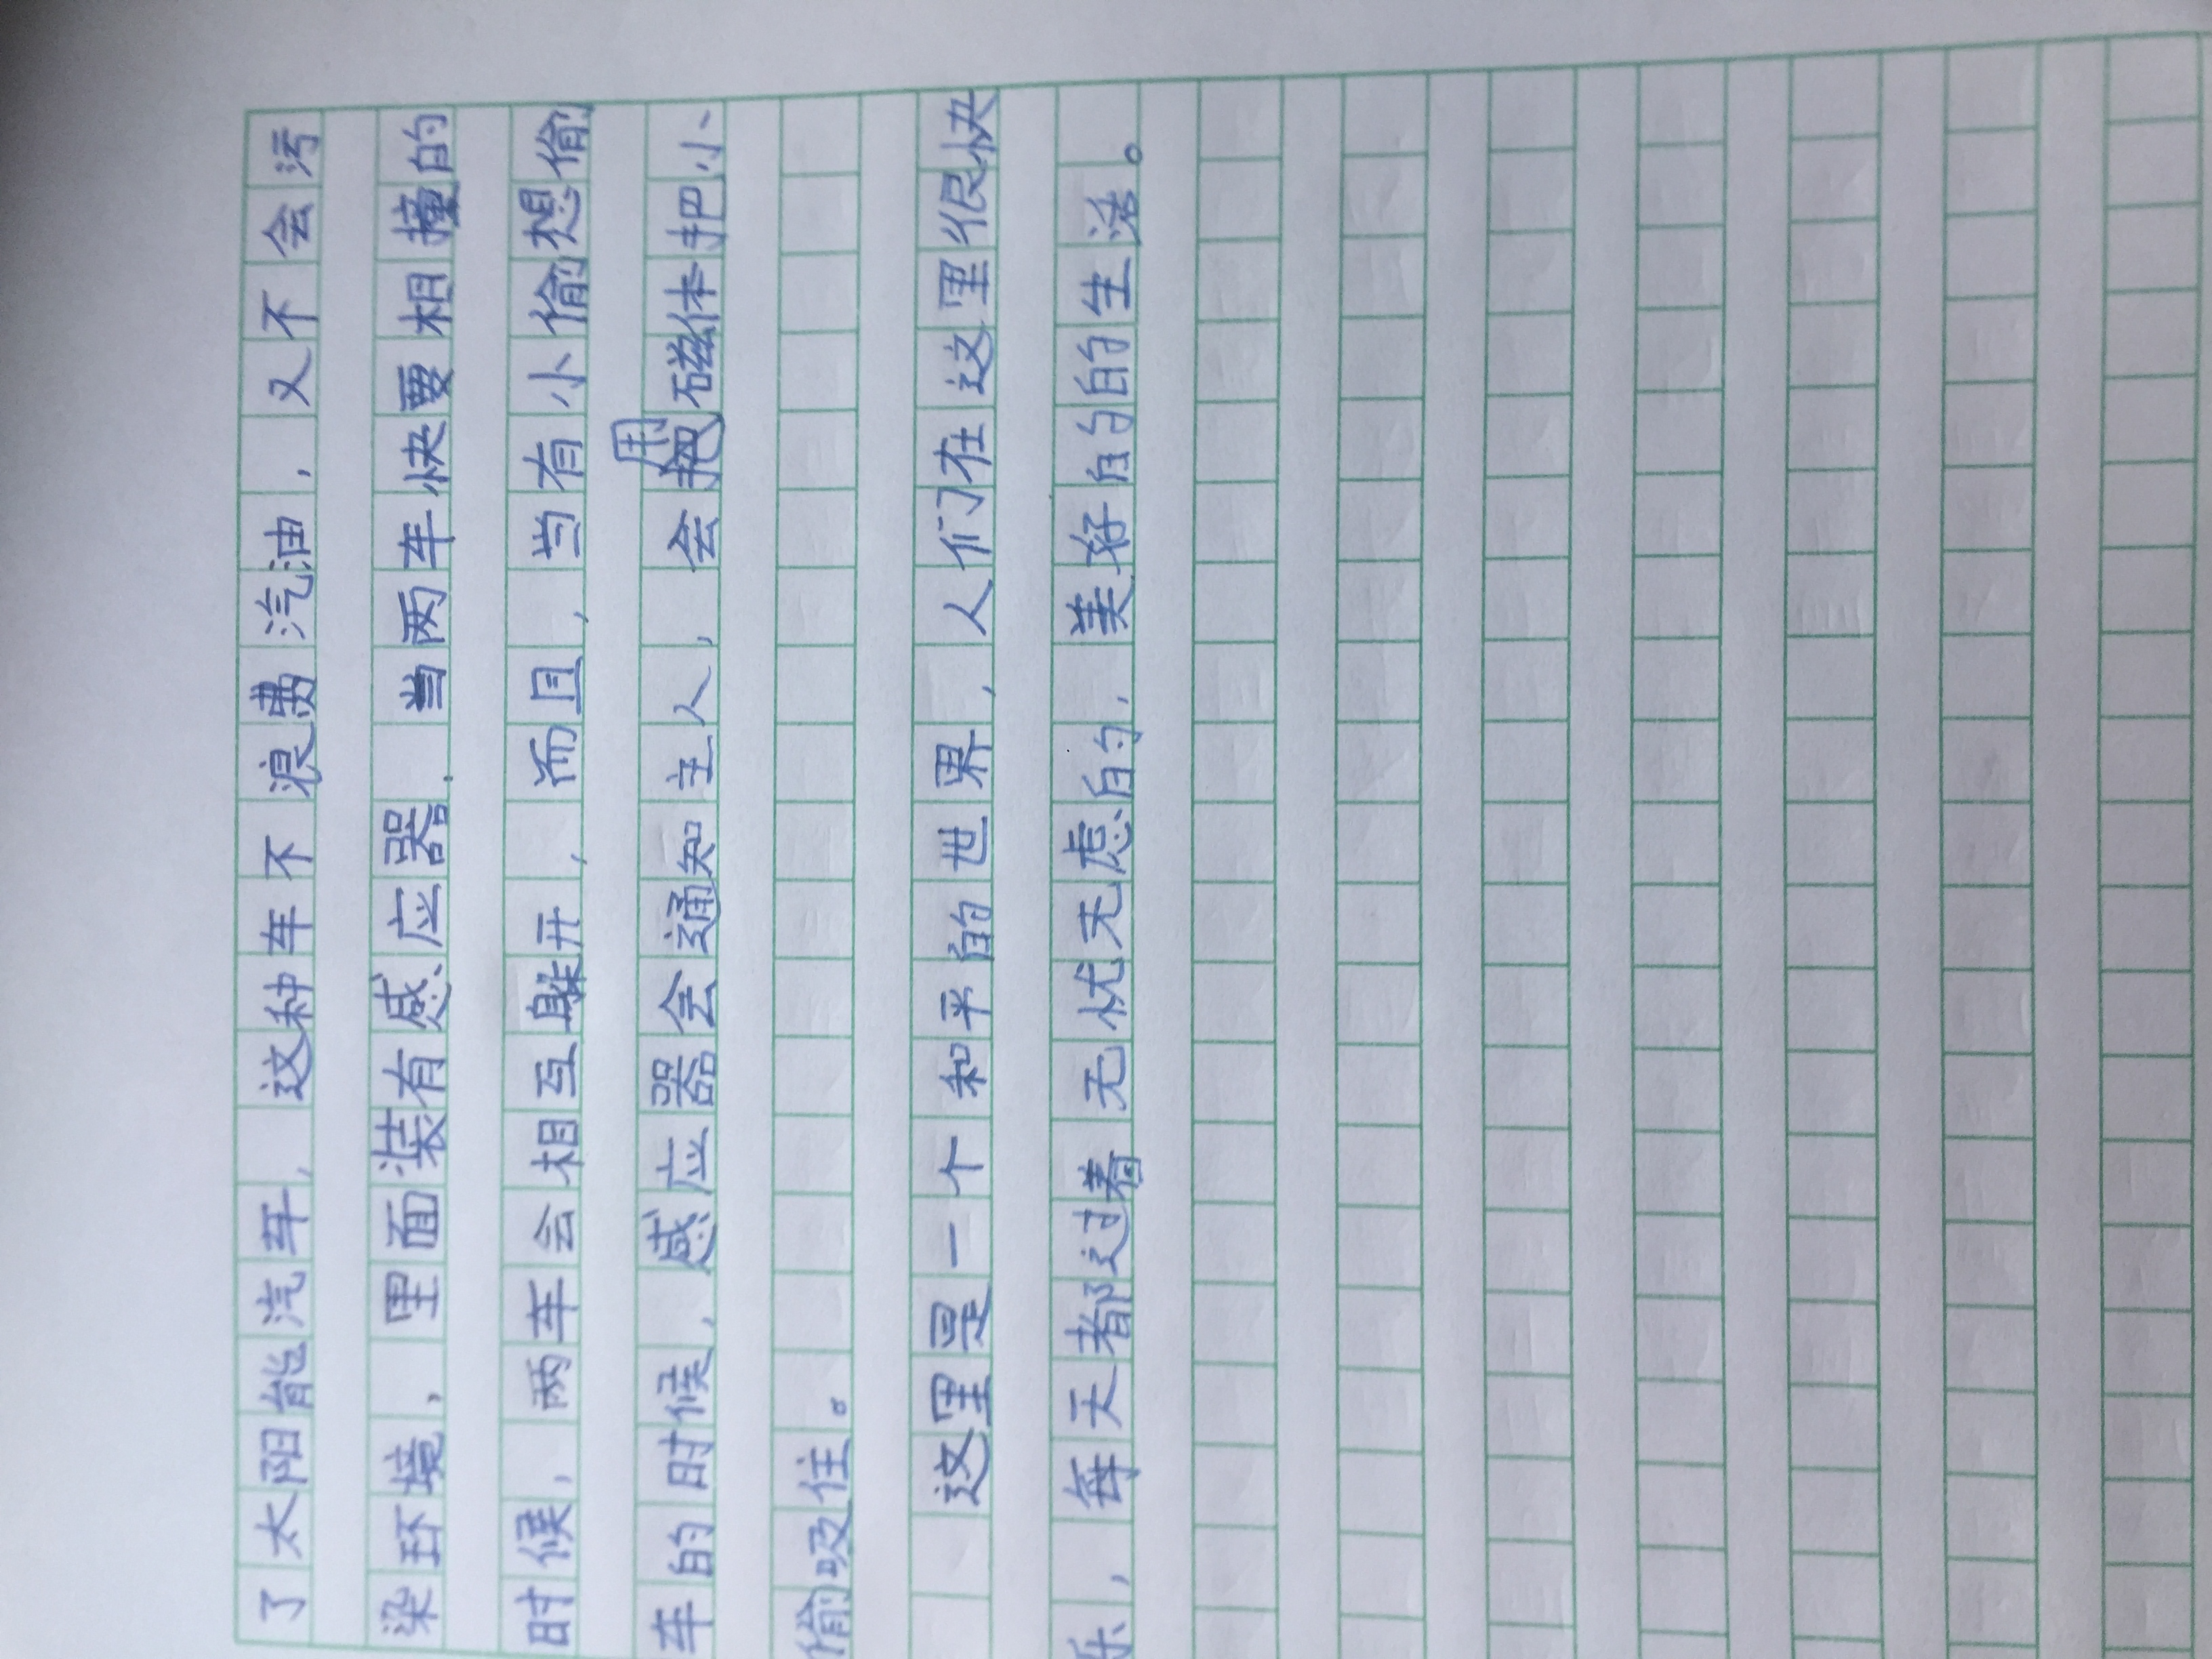 了太阳能汽车，这种车不浪费汽油，又不会污
染环境，里面装有感应器．当两车快要相撞的
时候，两车会相互躲开，而且，当有小偷想偷
车的时候，感应器会通知主人，会用磁体把小
偷吸住。
这里是一个和平的世界，人们在这里很快
乐，每天都过着无忧无虑的，美好的的的生活。